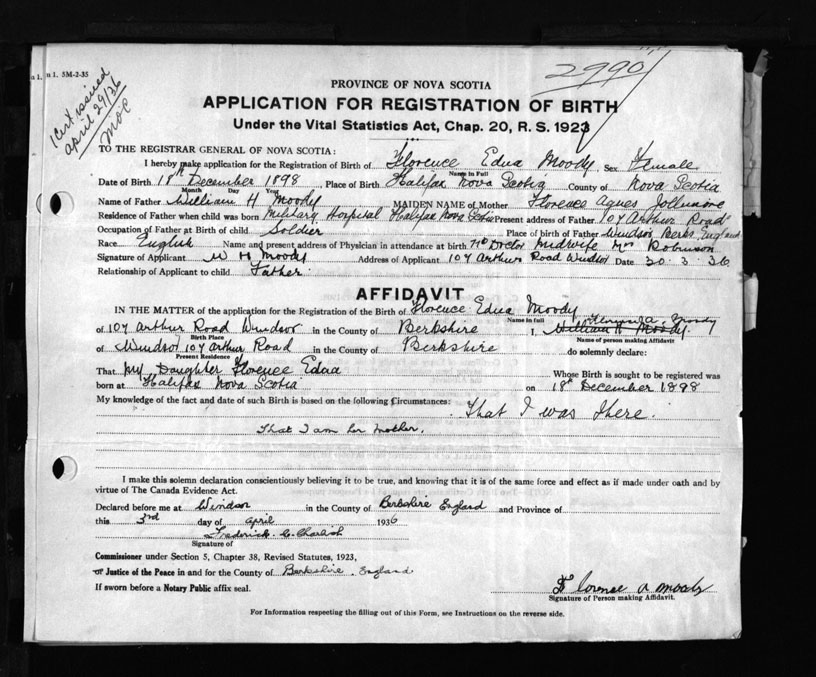 n 1. 5M-2-35
2990
1 Cert issued
april 29/36
PROVINCE OF NOVA SCOTIA
APPLICATION FOR REGISTRATION OF BIRTH
Under the Vital Statistics Act, Chap. 20, R. S. 1923
TO THE REGISTRAR GENERAL OF NOVA SCOTIA:
I hereby make application for the Registration of Birth of Florence Edna Moody Sex Female
Name in Full
Date of Birth 18th December 1898 Place of Birth Halifax Nova Scotia County of Nova Scotia
Month Day Year
Name of Father William H Moody MAIDEN NAME of Mother Florence Agnes Jollimore
Residence of Father when child was born Military Hospital Halifax Nova Scotia Present address of Father 104 Arthur Road
Occupation of Father at Birth of child Soldier Place of birth of Father Windsor Berks England
Race English Name and present address of Physician in attendance at birth no Doctor Midwife Mrs Robinson
Signature of Applicant W H Moody Address of Applicant 104 Arthur Road Windsor Date 30.3.36
Relationship of Applicant to child Father.
AFFIDAVIT
IN THE MATTER of the application for the Registration of the Birth of Florence Edna Moody
Name in full
of 104 Arthur Road Windsor in the County of Berkshire I, William H Moody.
Birth Place Name of person making Affidavit
of Windsor 104 Arthur Road in the County of Berkshire do solemnly declare:
Present Residence
That my Daughter Florence Edna Whose Birth is sought to be registered was
born at Halifax Nova Scotia on 18th December 1898
My knowledge of the fact and date of such Birth is based on the following Circumstances:
That I was there.
That I am her mother.
I make this solemn declaration conscientiously believing it to be true, and knowing that it is of the same force and effect as if made under oath and by
virtue of The Canada Evidence Act.
Declared before me at Windsor in the County of Berkshire England and Province of
this 3rd day of april 1936
Frederick
Signature of
Commissioner under Section 5, Chapter 38, Revised Statutes, 1923,
or Justice of the Peace in and for the County of Berkshire. England
If sworn before a Notary Public affix seal.
Florence A Moody
Signature of Person making Affidavit.
For Information respecting the filling out of this Form, see Instructions on the reverse side.